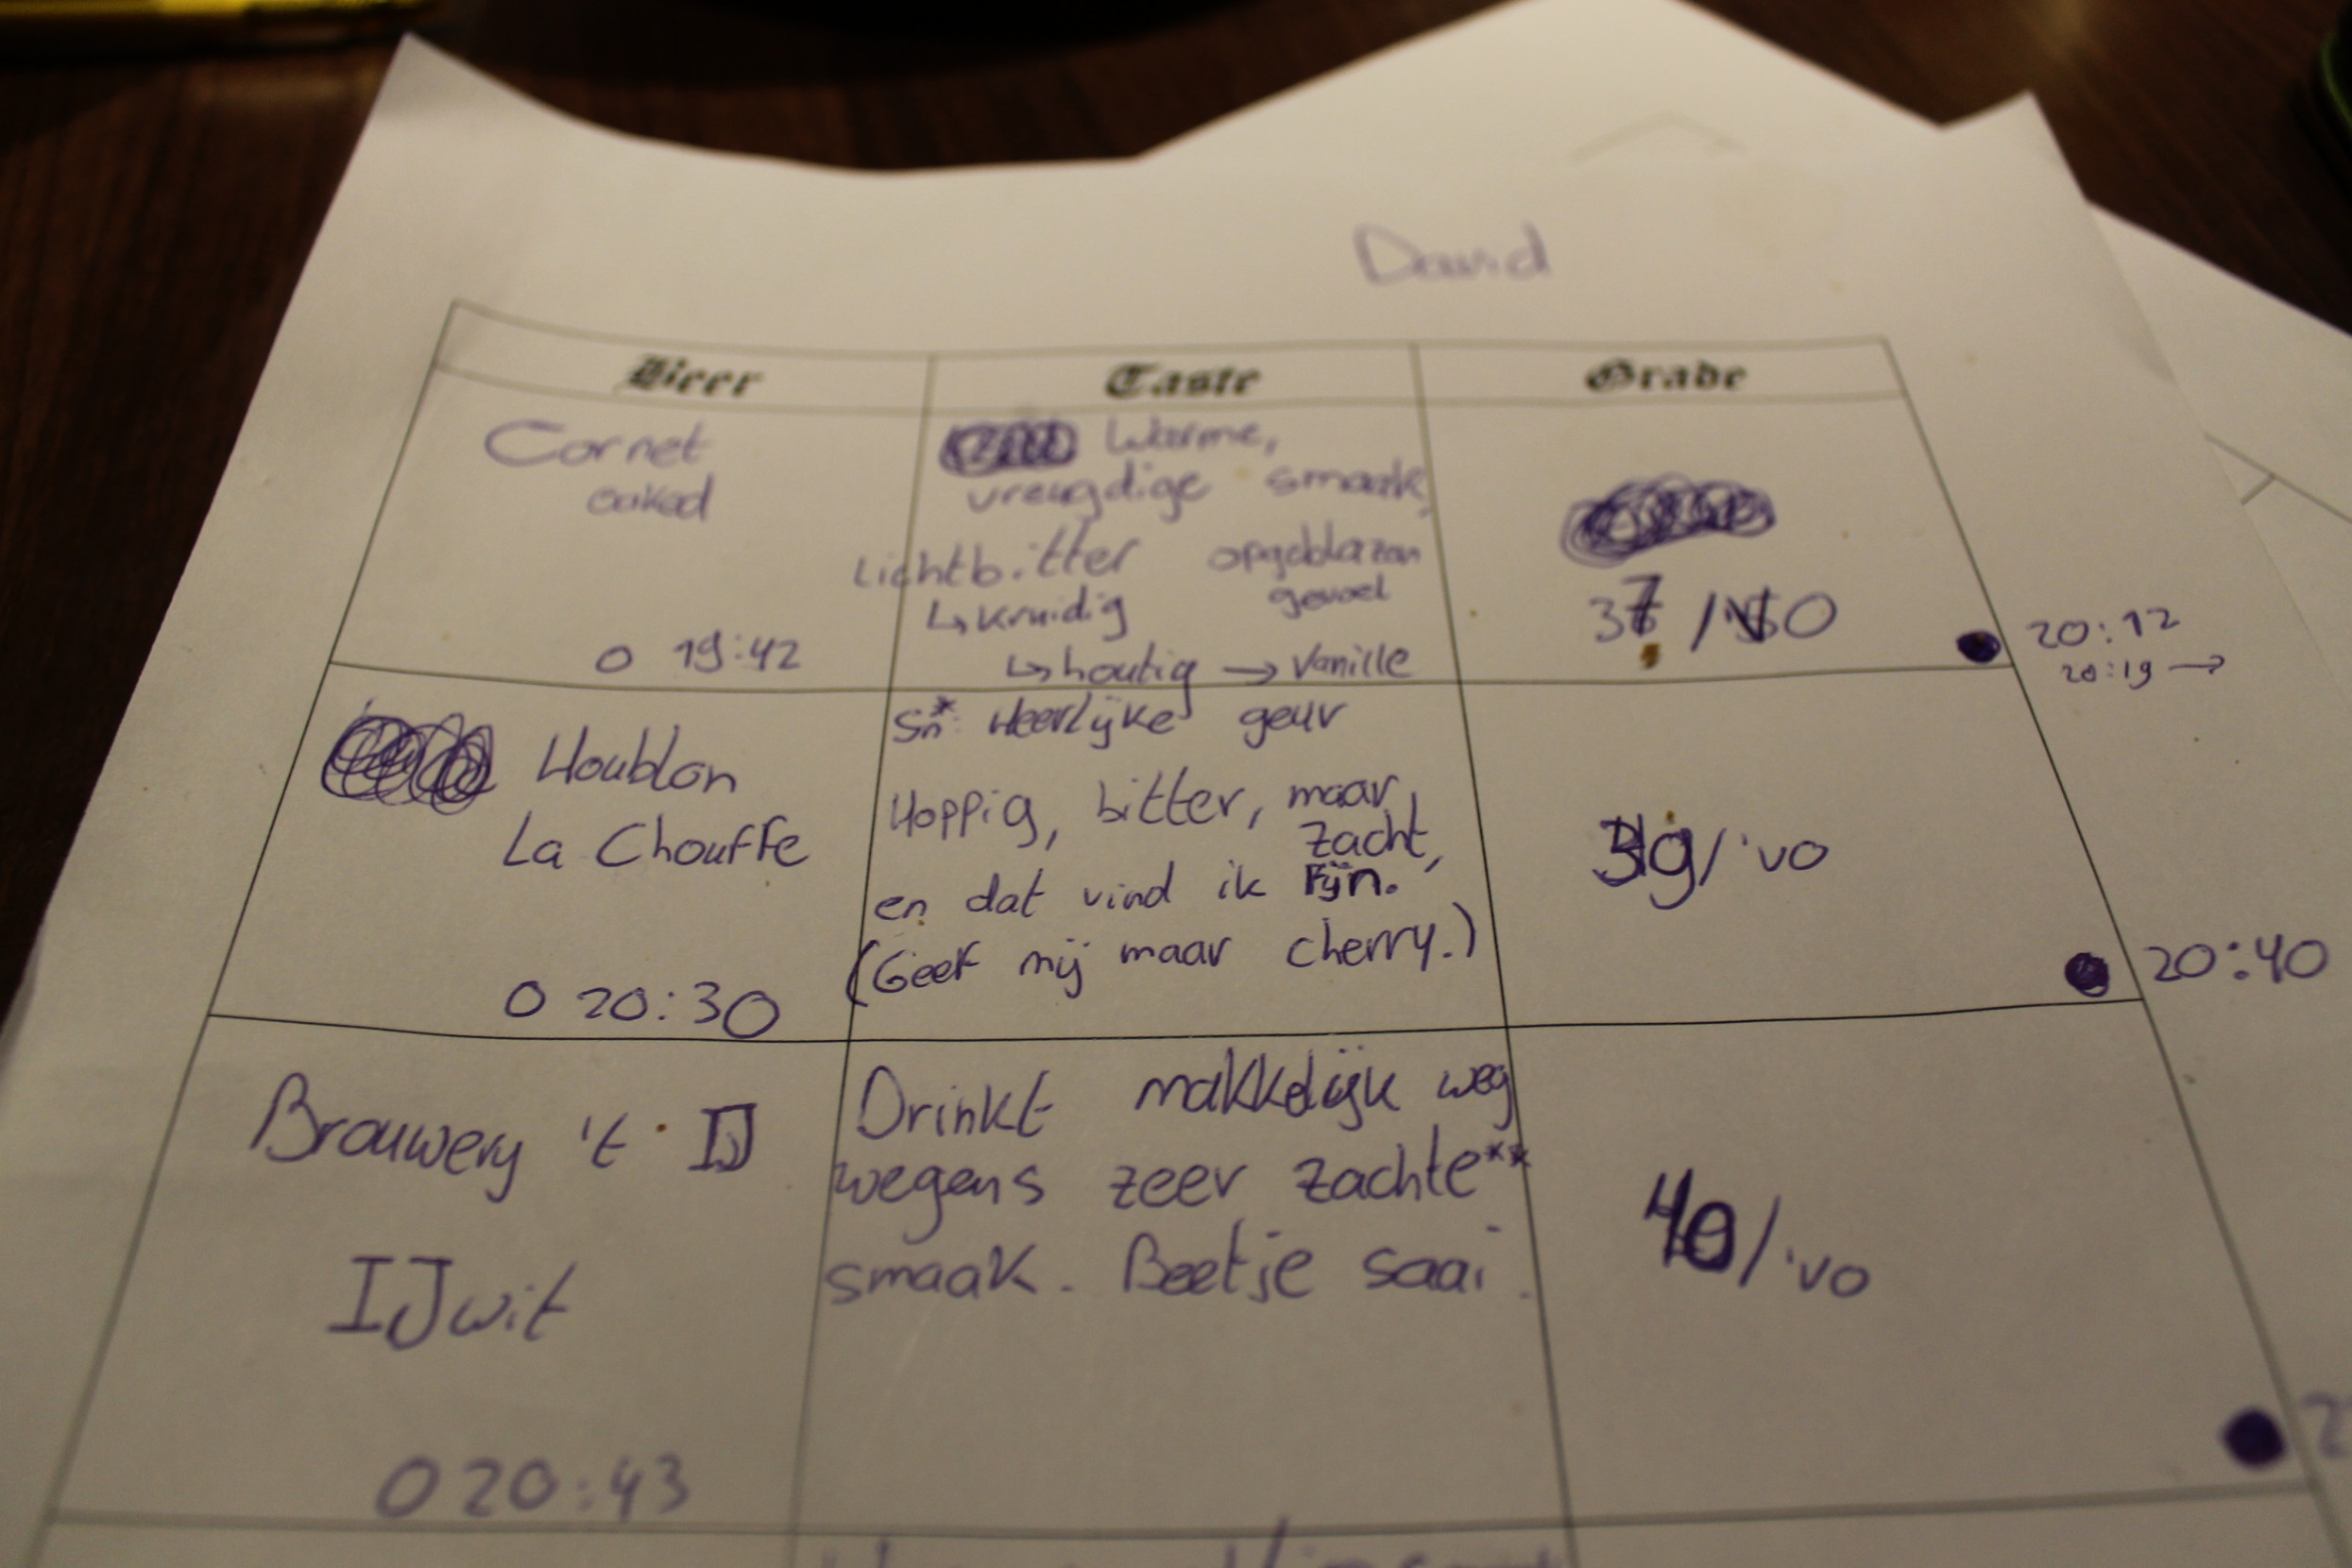 David
Beer Taste Grade
Cornet
oaked
O 19:42
Warme,
vreugdige smaak,
Lichtbitter opgeblazen
gevoel
↳ kruidig
↳ houtig → Vanille
37 / 50
20:12
20:19 →
Houblon
La Chouffe
O 20:30
Sn*: Heerlijke geur
Hoppig, bitter, maar
zacht,
en dat vind ik Fijn.
(Geef mij maar cherry.)
39/'vo
20:40
Brouwery 't IJ
IJwit
O 20:43
Drinkt makkelijk weg
wegens zeer zachte**
smaak. Beetje saai.
40/'vo